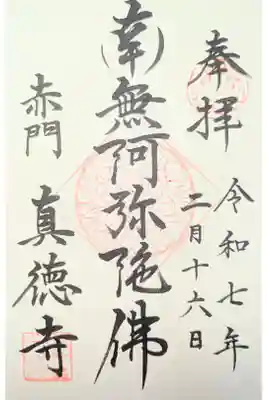 奉拝
令和七年
二月十六日
南無阿弥陀佛
赤門 真徳寺